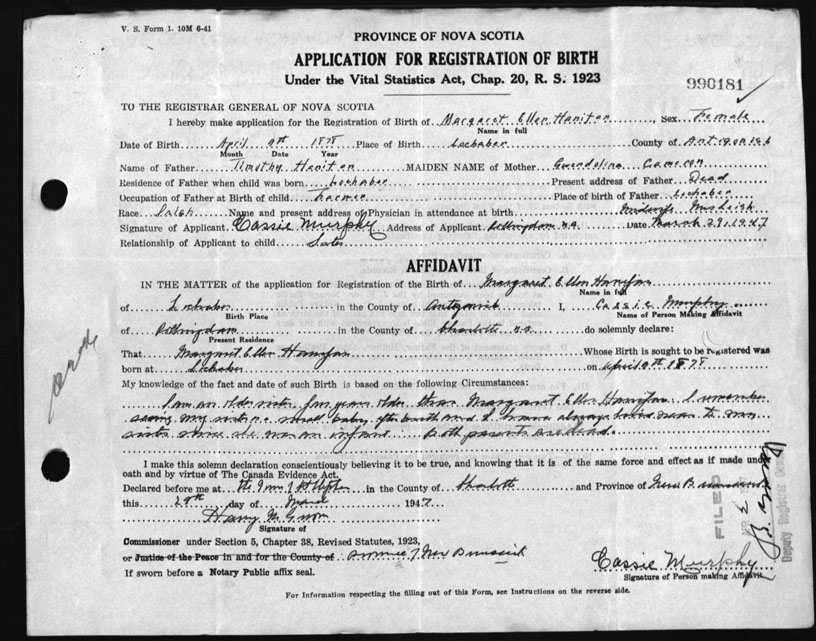 V. S. Form 1. 10M 6-41
PROVINCE OF NOVA SCOTIA
APPLICATION FOR REGISTRATION OF BIRTH
Under the Vital Statistics Act, Chap. 20, R. S. 1923
990181
TO THE REGISTRAR GENERAL OF NOVA SCOTIA
I hereby make application for the Registration of Birth of Margaret Ellen Hanifan, Sex Female
Name in full
Date of Birth April 9th 1878 Place of Birth Lochaber County of Antigonish
Month Date Year
Name of Father Timothy Hanifan MAIDEN NAME of Mother Gwendoline Cameron
Residence of Father when child was born Lochaber Present address of Father Dead
Occupation of Father at Birth of child Farmer Place of birth of Father Lochaber
Race Name and present address of Physician in attendance at birth Midwife
Signature of Applicant Cassie Murphy Address of Applicant Date March 29, 1947
Relationship of Applicant to child
AFFIDAVIT
IN THE MATTER of the application for Registration of the Birth of Margaret Ellen Hanifan
Name in full
of Lochaber in the County of Antigonish I, Cassie Murphy
Birth Place Name of Person Making Affidavit
of in the County of Charlotte do solemnly declare:
Present Residence
That Margaret Ellen Hanifan Whose Birth is sought to be registered was
born at Lochaber on April 9th 1878
My knowledge of the fact and date of such Birth is based on the following Circumstances:
I am an older sister, four years older than Margaret Ellen Hanifan. I remember
seeing my sister a small baby after birth and I have always lived near to my
sister since she was an infant. Both parents are dead.
I make this solemn declaration conscientiously believing it to be true, and knowing that it is of the same force and effect as if made under
oath and by virtue of The Canada Evidence Act.
Declared before me at the Town of St Stephen in the County of Charlotte and Province of New Brunswick
this 29th day of March 1947
Harry
Signature of
Commissioner under Section 5, Chapter 38, Revised Statutes, 1923,
or Justice of the Peace in and for the County of Province of New Brunswick
If sworn before a Notary Public affix seal.
Cassie Murphy
Signature of Person making Affidavit
For Information respecting the filling out of this Form, see Instructions on the reverse side.
FILED
Deputy Registrar General